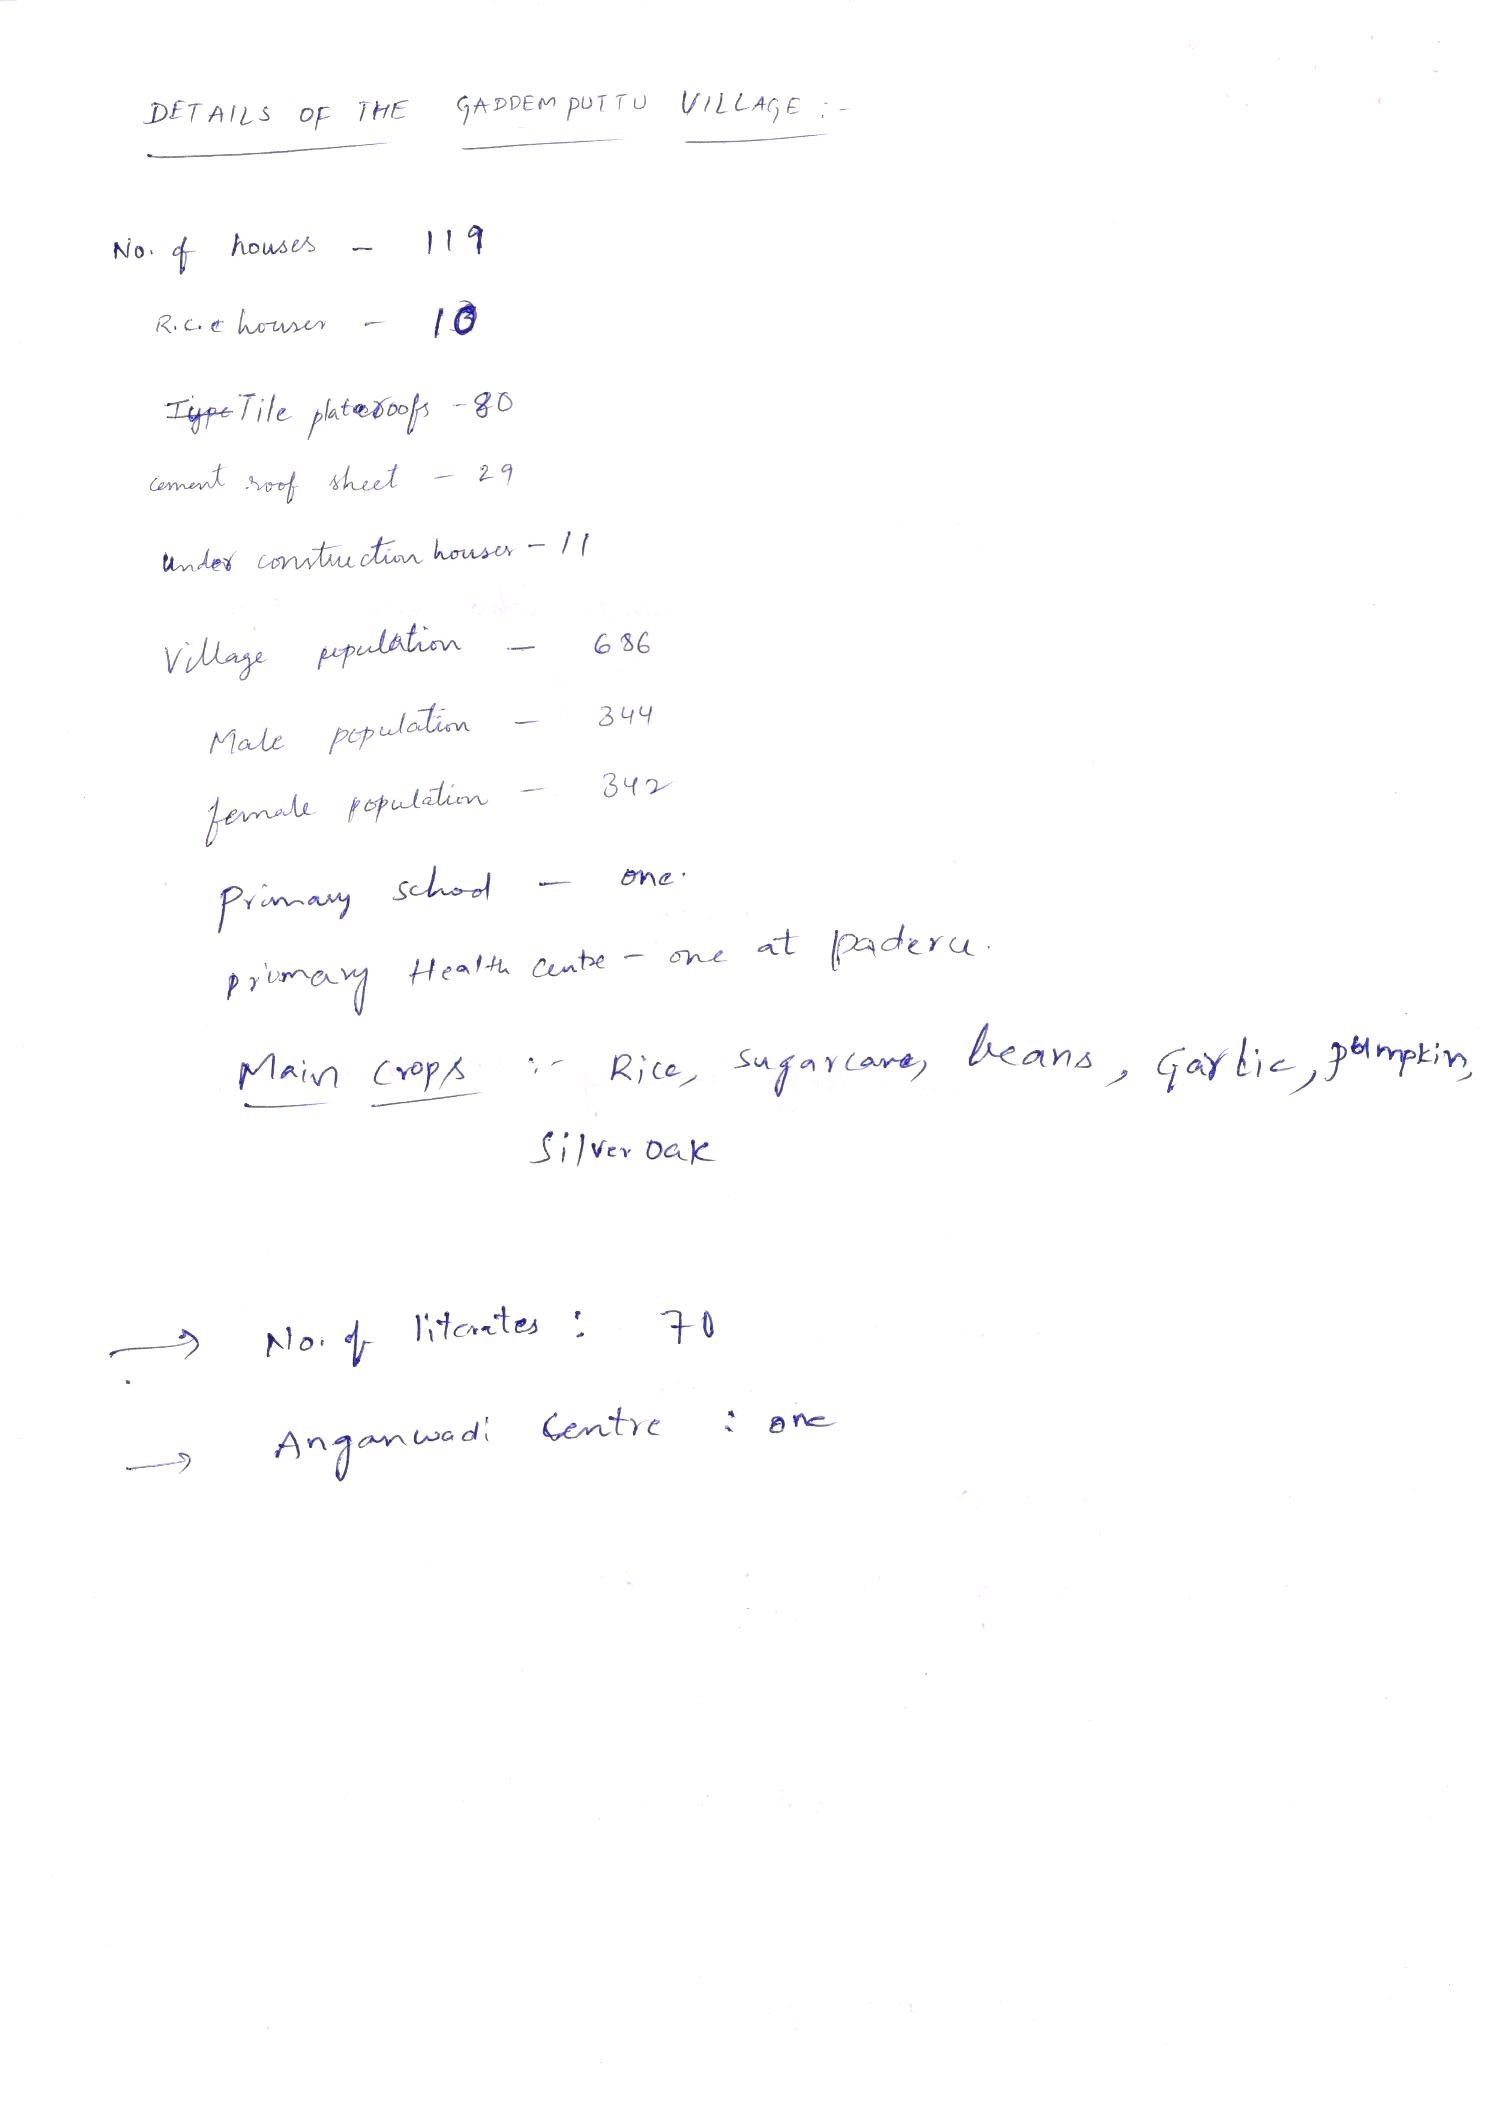 DETAILS OF THE GADDEMPUTTU VILLAGE :-
No. of houses - 119
R.C.C houses - 10
Type Tile plate roofs - 80
Cement roof sheet - 29
Under construction houses - 11
Village population - 686
Male population - 344
female population - 342
Primary school - one.
primary Health centre - one at paderu.
Main Crops :- Rice, Sugarcane, beans, Garlic, pumpkin,
Silver oak
→ No. of literates : 70
→ Anganwadi Centre : one